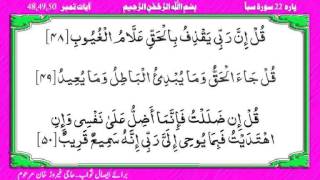 پارہ 22 سورۃ سبأ
بِسْمِ اللّٰهِ الرَّحْمٰنِ الرَّحِيْمِ
آیات نمبر 48,49,50
قُلْ إِنَّ رَبِّي يَقْذِفُ بِالْحَقِّ عَلَّامُ الْغُيُوبِ [٤٨]
قُلْ جَاءَ الْحَقُّ وَمَا يُبْدِئُ الْبَاطِلُ وَمَا يُعِيدُ [٤٩]
قُلْ إِن ضَلَلْتُ فَإِنَّمَا أَضِلُّ عَلَىٰ نَفْسِي وَإِنِ
اهْتَدَيْتُ فَبِمَا يُوحِي إِلَيَّ رَبِّي إِنَّهُ سَمِيعٌ قَرِيبٌ [٥٠]
برائے ایصال ثواب۔ حاجی فیروز خان مرحوم